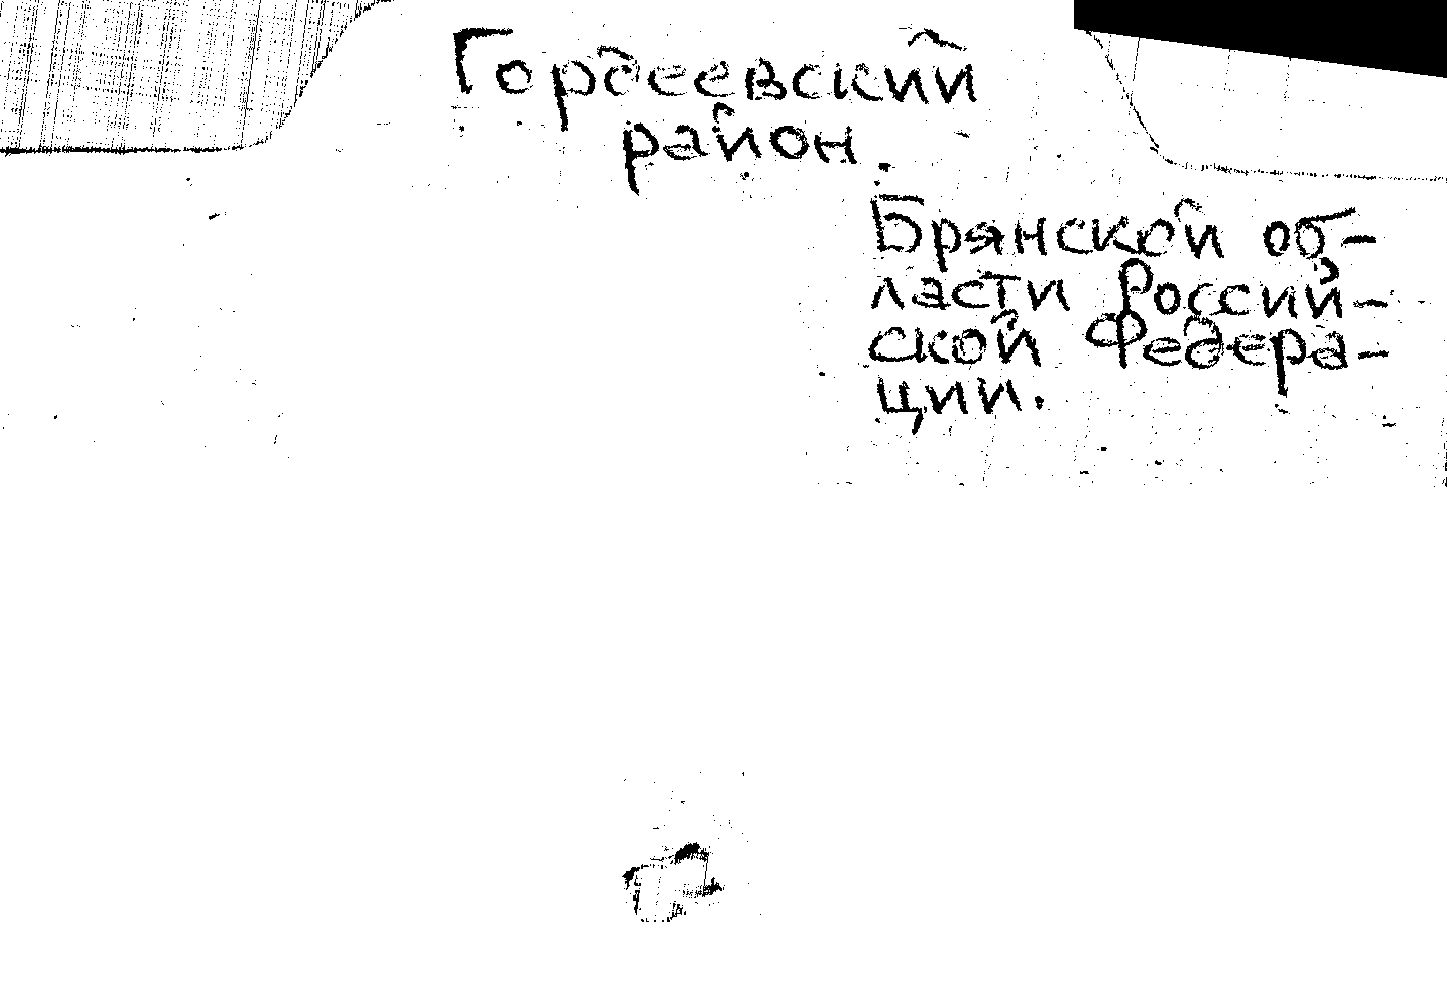 Гордеевский
район.
Брянской об-
ласти Россий-
ской Федера-
ции.